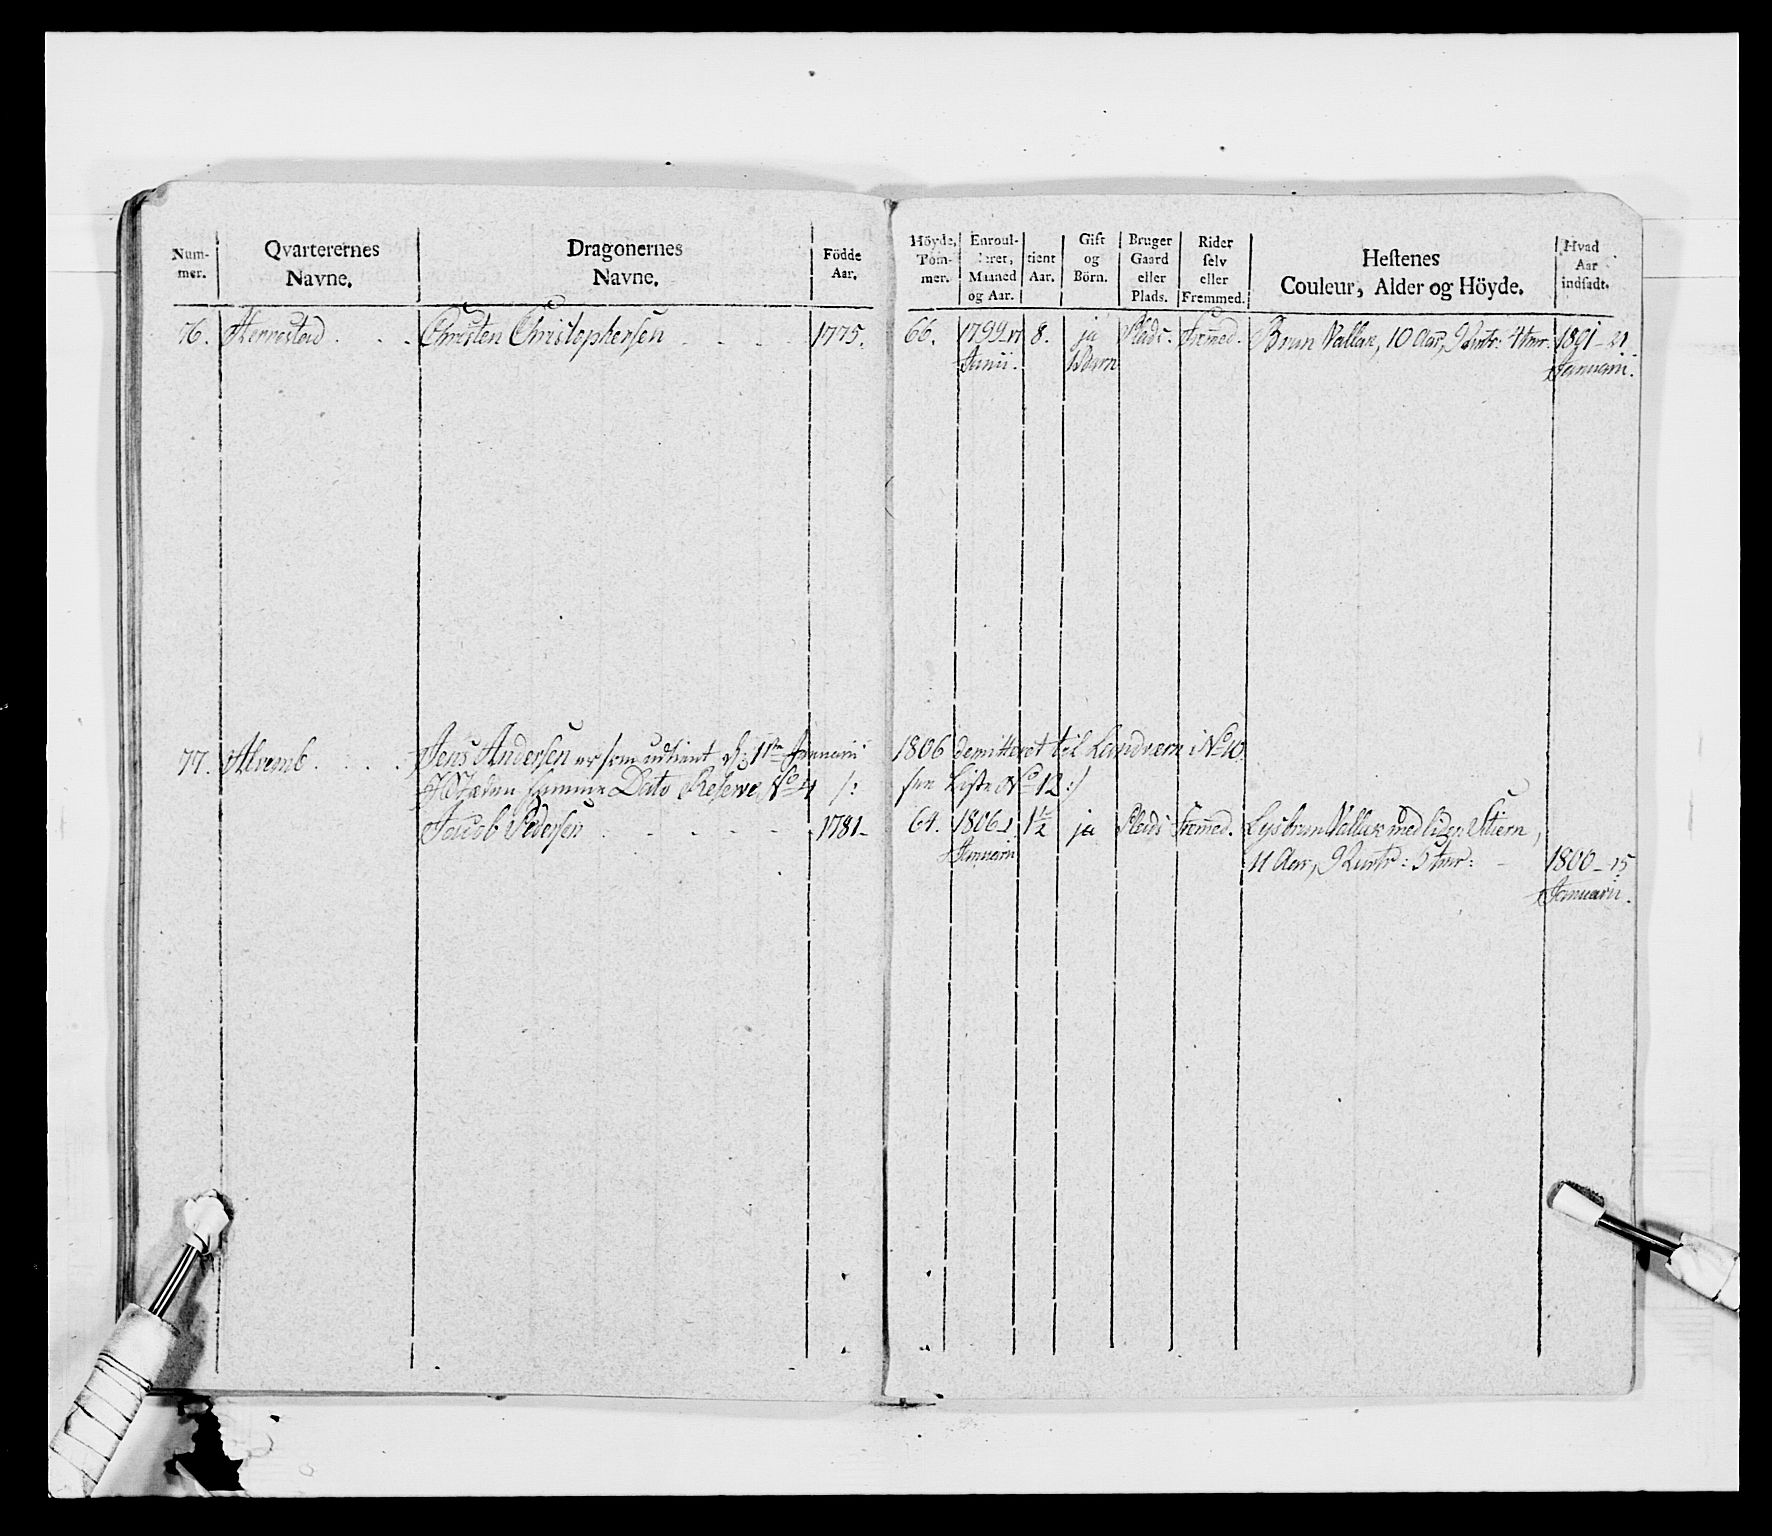 Num-
mer.
Qvarterernes
Navne.
Dragonernes
Navne.
Födde
Aar.
Höyde,
Tom-
mer.
Enroul-
leret,
Maaned
og Aar.
tient
Aar.
Gift
og
Börn.
Bruger
Gaard
eller
Plads.
Rider
selv
eller
Fremmed.
Hestenes
Couleur, Alder og Höyde.
Hvad
Aar
indsadt.
76. Herrestad . . . Christen Christophersen . . . . 1775. 66. 1799 17 8. ja Plads. Fremed. Brun Vallak, 10 Aar, 9 Qvartr: 4 tmr. 1801 - 21
Junii. 1 Barn Januarii.
77. Alremb . . . . Jens Andersen er som udtient d: 1ste Januarii 1806 demitteret til Landværn No 10
I Stæden samme Dato Reserve No 4 /: see Liste No 12 :/
Jacob Pedersen . - - - - 1781 - 64. 1806 1 1½ ja Plads Fremed. Lysbrun Vallak med liden Stiern,
Januarii 11 Aar, 9 Qvartr: 3 tmr: - 1800 - 15
Januarii.